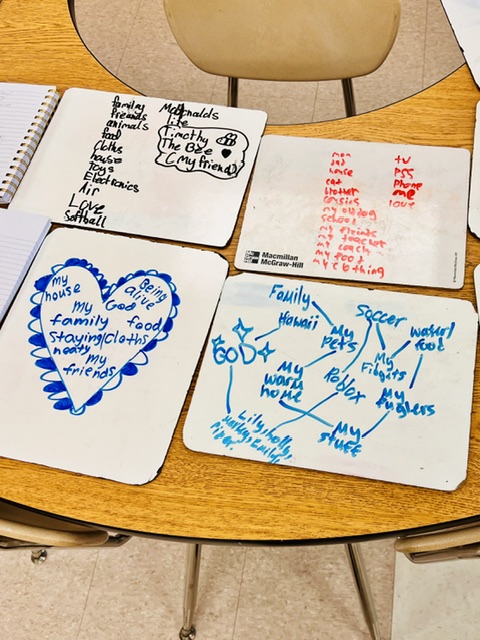 family
freands
animals
food
Cloths
house
toys
Electronics
Air
LOVE
Softball
McDonalds
life
Timothy
The Bee
(My friend)
mom
dad
house
cat
brother
my old dog
school
my friends
my teacher
my coach
my food
my clothing
tv
PS5
Phone
me
love
Macmillan
McGraw-Hill
my
house
Being
alive
my
God
family
food
staying
cloths
my
friends
Family
Hawaii
GOD
My
Pets
Soccer
My
Fidgets
food
My
warm
home
Roblox
My
My
STUFF